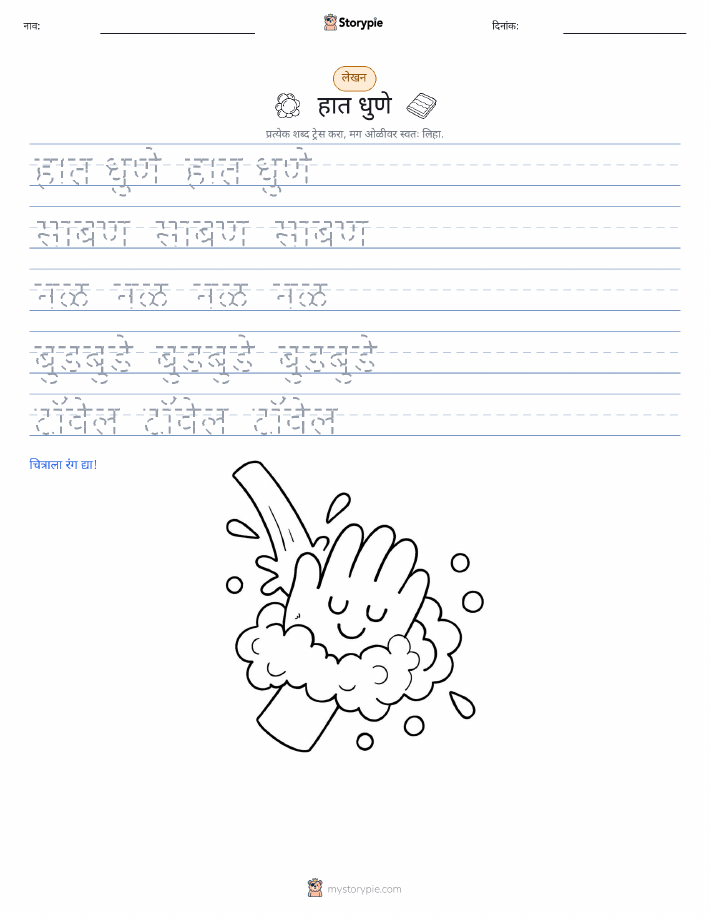 नाव:
Storypie
दिनांक:
लेखन
हात धुणे
प्रत्येक शब्द ट्रेस करा, मग ओळीवर स्वतः लिहा.
हात धुणे हात धुणे
साबण साबण साबण
नळ नळ नळ नळ
बुडबुडे बुडबुडे बुडबुडे
टॉवेल टॉवेल टॉवेल
चित्राला रंग द्या!
mystorypie.com